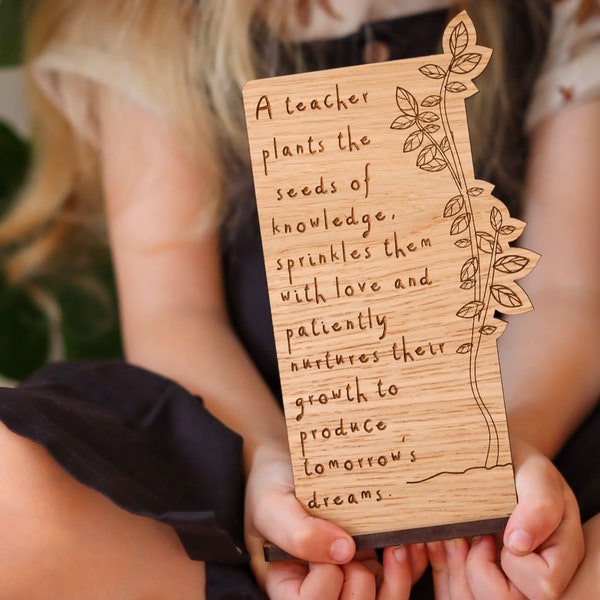 A teacher
plants the
seeds of
knowledge,
sprinkles them
with love and
patiently
nurtures their
growth to
produce
tomorrow's
dreams.